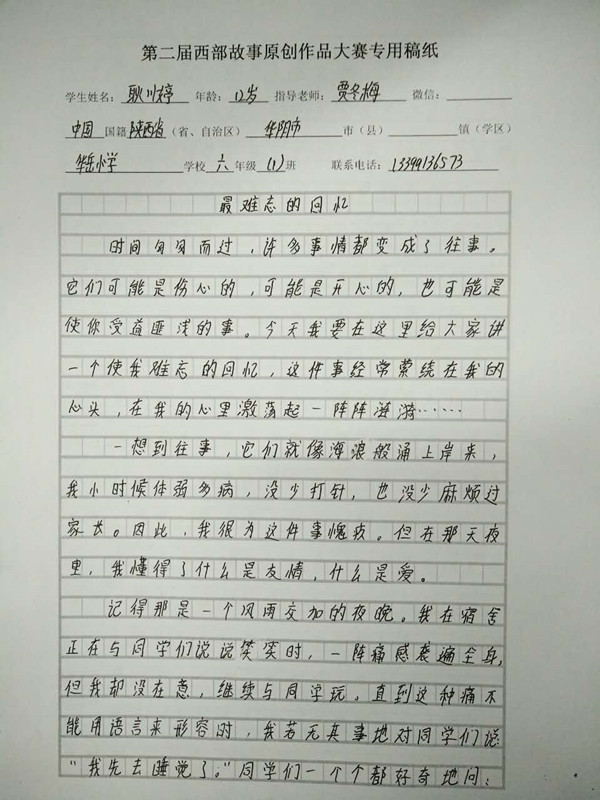 第二届西部故事原创作品大赛专用稿纸
学生姓名：耿川婷 年龄：12岁 指导老师：贾冬梅 微信：
中国 国籍 陕西省（省、自治区） 华阴市 市（县） 镇（学区）
华岳小学 学校 六 年级 （1） 班 联系电话：13399136573
最难忘的回忆
时间匆匆而过，许多事情都变成了往事。
它们可能是伤心的，可能是开心的，也可能是
使你受益匪浅的事。今天我要在这里给大家讲
一个使我难忘的回忆，这件事经常萦绕在我的
心头，在我的心里激荡起一阵阵涟漪……
一想到往事，它们就像海浪般涌上岸来，
我小时候体弱多病，没少打针，也没少麻烦过
家长。因此，我很为这件事愧疚。但在那天夜
里，我懂得了什么是友情，什么是爱。
记得那是一个风雨交加的夜晚。我在宿舍
正在与同学们说说笑笑时，一阵痛感袭遍全身，
但我却没在意，继续与同学玩。直到这种痛不
能用语言来形容时，我若无其事地对同学们说
“我先去睡觉了。”同学们一个个都好奇地问：